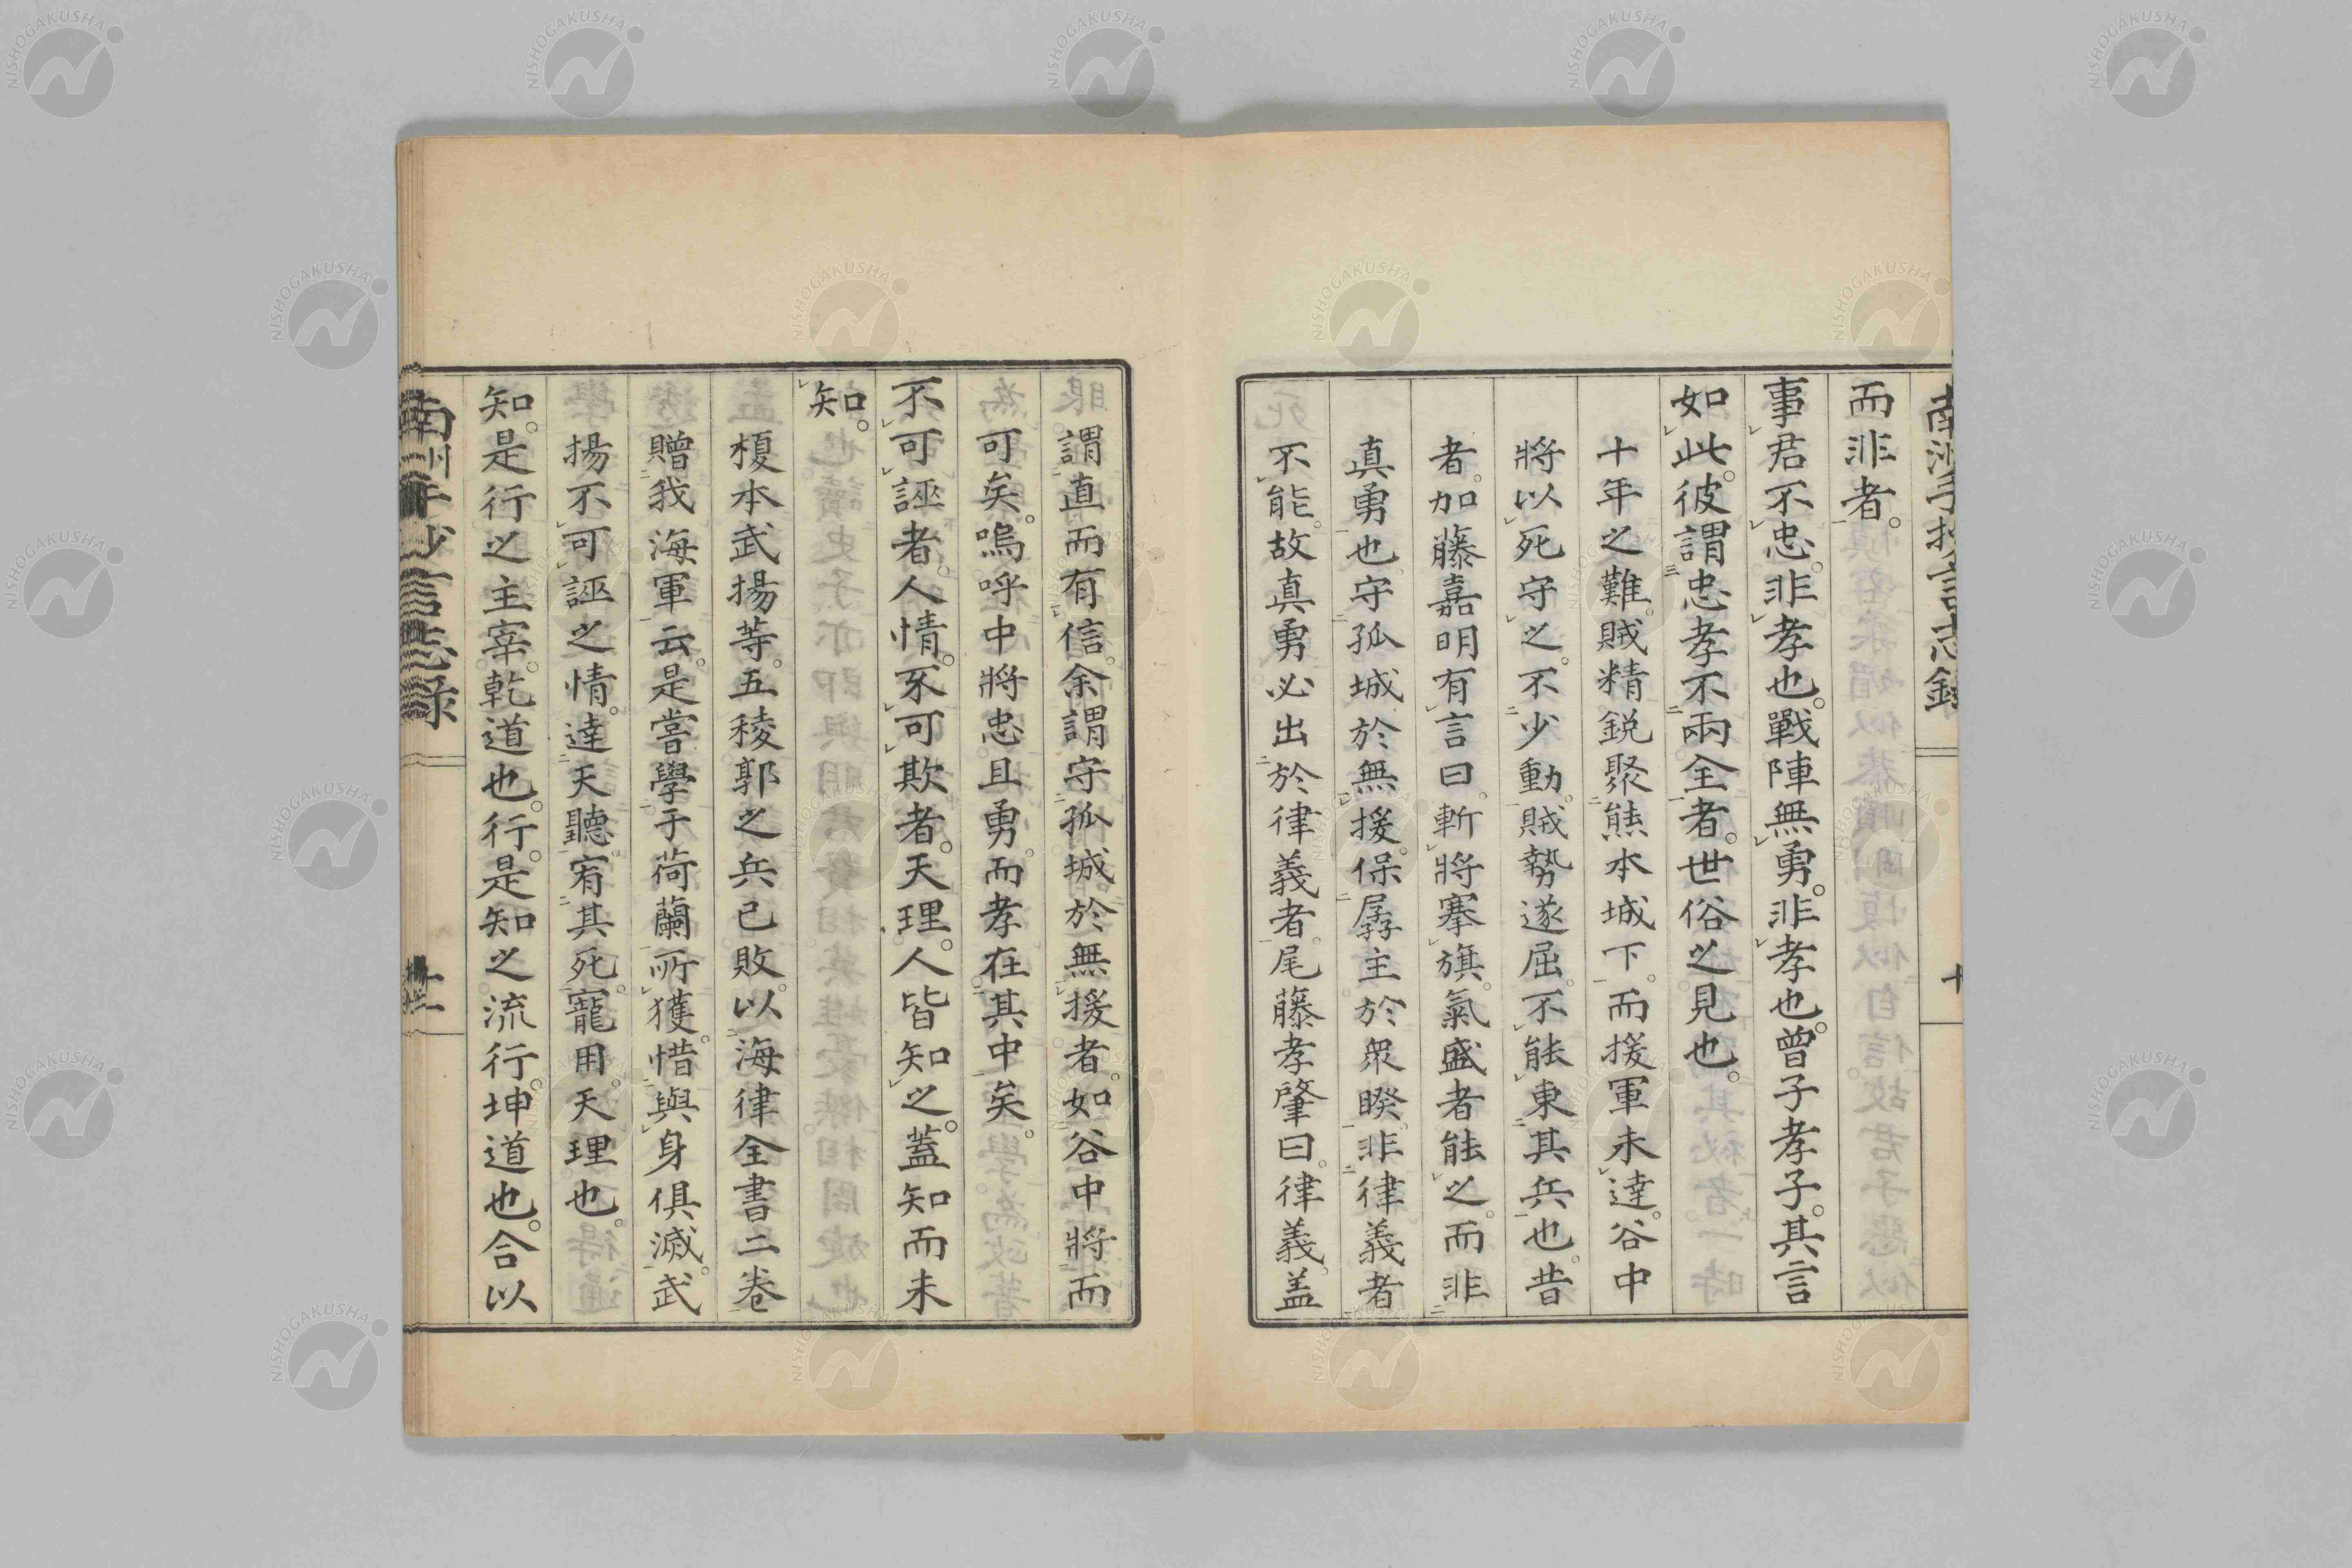 而非者。
事君不忠。非孝也。戰陣無勇。非孝也。曾子孝子。其言
如此。彼謂忠孝不兩全者。世俗之見也。
十年之難。賊精鋭聚熊本城下。而援軍未達。谷中
將以死守之。不少動。賊勢遂屈。不能東其兵也。昔
者。加藤嘉明有言曰。斬將搴旗。氣盛者能之。而非
真勇也。守孤城於無援。保孱主於衆睽。非律義者
不能。故真勇必出於律義者。尾藤孝肇曰。律義。蓋
謂直而有信。余謂守孤城於無援者。如谷中將而
可矣。嗚呼中將忠且勇。而孝在其中矣。
不可誣者。人情。不可欺者。天理。人皆知之。蓋知而未
知。
榎本武揚等。五稜郭之兵已敗。以海律全書二卷
贈我海軍云。是嘗學于荷蘭所獲。惜與身俱滅。武
揚不可誣之情。達天聽。宥其死。寵用。天理也。
知。是行之主宰。乾道也。行。是知之流行。坤道也。合以
南洲手抄言志録
十一
NISHOGAKUSHA